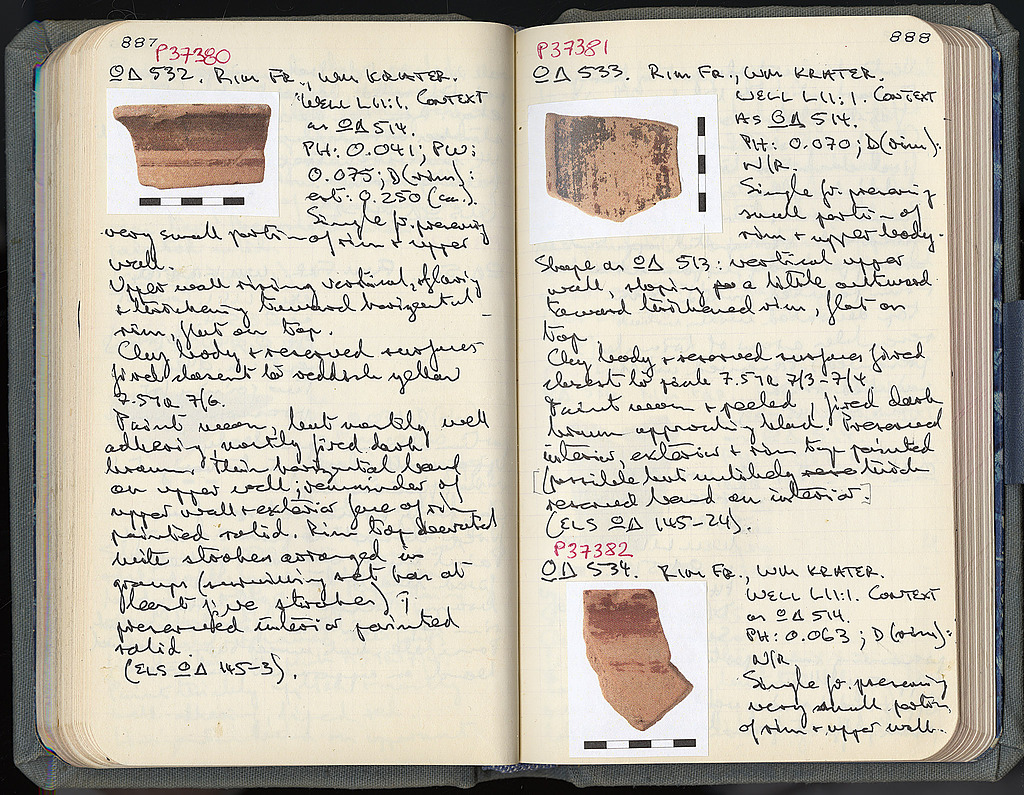 887
P37380
ΟΔ 532. RIM FR., WM KRATER.
WELL L11:1. CONTEXT
as ΟΔ 514.
PH: 0.041; PW:
0.075; D(rim):
est. 0.250 (ca.).
Single fr. preserving
very small portion of rim + upper
wall.
Upper wall rising vertical, flaring
+ thickening toward horizontal
rim, flat on top.
Clay body + reserved surfaces
fired closest to reddish yellow
7.5YR 7/6.
Paint worn, but mostly well
adhering, mostly fired dark
brown. Thin horizontal band
on upper wall; remainder of
upper wall + exterior face of rim
painted solid. Rim top decorated
with strokes arranged in
groups (surviving set has at
least five strokes).
preserved interior painted
solid.
(ELS ΟΔ 145-3).
888
P37381
ΟΔ 533. RIM FR., WM KRATER.
WELL L11:1. CONTEXT
AS ΟΔ 514.
PH: 0.070; D(rim):
N/R.
Single fr. preserving
small portion of
rim + upper body.
Shape as ΟΔ 513: vertical upper
wall, sloping a little outward
toward thickened rim, flat on
top.
Clay body + reserved surfaces fired
closest to pink 7.5YR 7/3-7/4.
Paint worn + peeled, fired dark
brown approaching black. Preserved
interior, exterior + rim top painted
[(possible but unlikely thick
reserved band on interior.]
(ELS ΟΔ 145-24).
P37382
ΟΔ 534. RIM FR., WM KRATER.
WELL L11:1. CONTEXT
as ΟΔ 514.
PH: 0.063; D(rim):
N/R
Single fr. preserving
very small portion
of rim + upper wall.